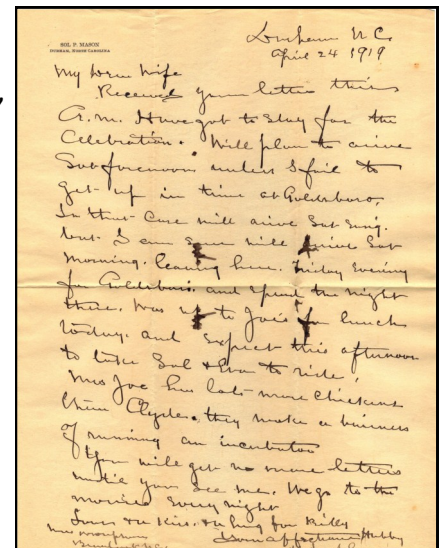 SOL P. MASON
DURHAM, NORTH CAROLINA
Durham N.C.
April 24 1919
My Dear Wife
Received your letter this
A.m. Have got to stay for the
Celebration. Will plan to arive
Sat forenoon unless I fail to
get up in time at Goldsboro,
In that case will arive Sat evng.
but I am sure will arive Sat
morning. leaving here. Friday evening
for Goldsboro. and spend the night
there. Was up to Joes for lunch
today. and expect this afternoon
to take Sol & to ride.
Mrs Joe has lots more chickens
than Clyde. they make a buiness
of running an incubator
You will get no more letters
until you see me. We go to the
movies every night
Love & Kiss. & hug for
Your affectionate Hubby
Mrs